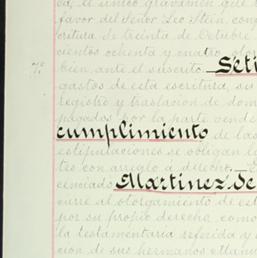 da, el único gravamen que
favor del Señor Leo Stein, con
critura de treinta de Octubre
cientos ochenta y cuatro, otor
7º bien, ante el suscrito. Seti
gastos de esta escritura, su
registro y traslacion de dom
pagados por la parte vende
cumplimiento de las
estipulaciones se obligan l
tes con arreglo á derecho.
cenciado Martinez de
curre al otorgamiento de es
por su propio derecho, como
la testamentaria referida y
cion de sus hermanos